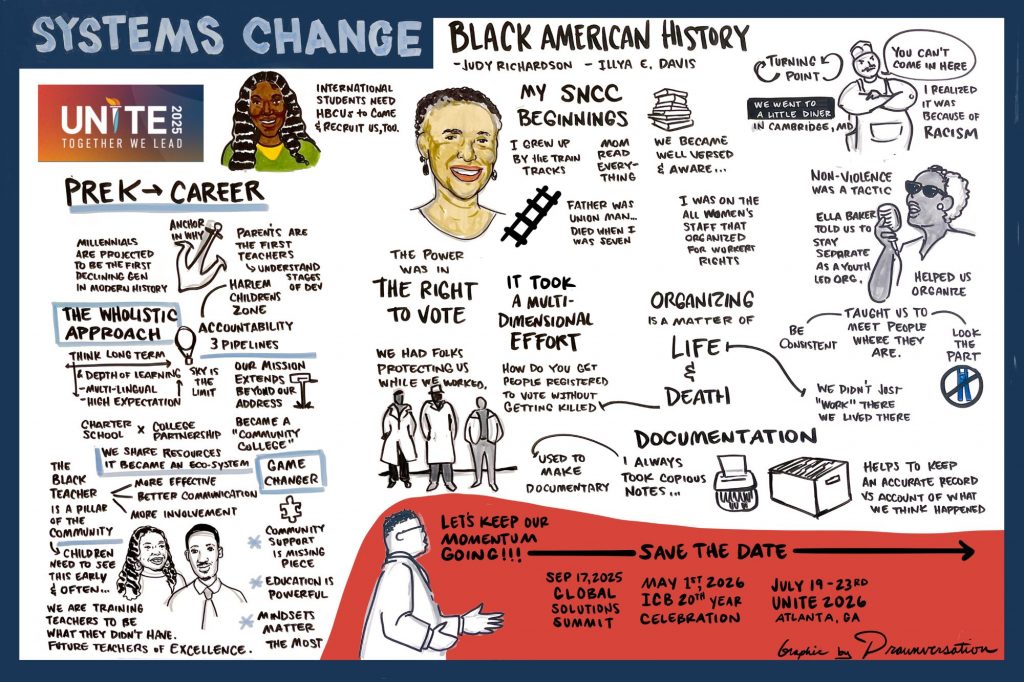 SYSTEMS CHANGE
UNITE
2025
TOGETHER WE LEAD
INTERNATIONAL
STUDENTS NEED
HBCUs TO COME
& RECRUIT US, TOO.
PRE K → CAREER
ANCHOR
IN WHY
MILLENNIALS
ARE PROJECTED
TO BE THE FIRST
DECLINING GEN
IN MODERN HISTORY
PARENTS ARE
THE FIRST
TEACHERS
↳ UNDERSTAND
STAGES
OF DEV
HARLEM
CHILDRENS
ZONE
THE WHOLISTIC
APPROACH
ACCOUNTABILITY
3 PIPELINES
THINK LONG TERM
& DEPTH OF LEARNING
-MULTI-LINGUAL
-HIGH EXPECTATION
SKY IS
THE
LIMIT
OUR MISSION
EXTENDS
BEYOND OUR
ADDRESS
BECAME A
"COMMUNITY
COLLEGE"
CHARTER
SCHOOL
x
COLLEGE
PARTNERSHIP
WE SHARE RESOURCES
IT BECAME AN ECO-SYSTEM
GAME
CHANGER
THE
BLACK
TEACHER
IS A PILLAR
OF THE
COMMUNITY
MORE EFFECTIVE
BETTER COMMUNICATION
MORE INVOLVEMENT
↳ CHILDREN
NEED TO SEE
THIS EARLY
& OFTEN...
WE ARE TRAINING
TEACHERS TO BE
WHAT THEY DIDN'T HAVE.
FUTURE TEACHERS OF EXCELLENCE.
* COMMUNITY
SUPPORT
IS MISSING
PIECE
* EDUCATION IS
POWERFUL
* MINDSETS
MATTER
THE MOST
BLACK AMERICAN HISTORY
-JUDY RICHARDSON - ILLYA E. DAVIS
MY SNCC
BEGINNINGS
I GREW UP
BY THE TRAIN
TRACKS
MOM
READ
EVERY-
THING
WE BECAME
WELL VERSED
& AWARE...
FATHER WAS
UNION MAN...
DIED WHEN I
WAS SEVEN
I WAS ON THE
ALL WOMEN'S
STAFF THAT
ORGANIZED
FOR WORKERS
RIGHTS
TURNING
POINT
WE WENT TO
A LITTLE DINER
IN CAMBRIDGE, MD
YOU CAN'T
COME IN HERE
I REALIZED
IT WAS
BECAUSE OF
RACISM
NON-VIOLENCE
WAS A TACTIC
ELLA BAKER
TOLD US TO
STAY
SEPARATE
AS A YOUTH
LED ORG.
HELPED US
ORGANIZE
TAUGHT US TO
MEET PEOPLE
WHERE THEY
ARE.
BE
CONSISTENT
LOOK
THE
PART
THE POWER
WAS IN
THE RIGHT
TO VOTE
IT TOOK
A MULTI-
DIMENSIONAL
EFFORT
ORGANIZING
IS A MATTER OF
LIFE
&
DEATH
WE DIDN'T JUST
"WORK" THERE
WE LIVED THERE
WE HAD FOLKS
PROTECTING US
WHILE WE WORKED.
HOW DO YOU GET
PEOPLE REGISTERED
TO VOTE WITHOUT
GETTING KILLED
DOCUMENTATION
USED TO
MAKE
DOCUMENTARY
I ALWAYS
TOOK COPIOUS
NOTES...
HELPS TO KEEP
AN ACCURATE RECORD
VS ACCOUNT OF WHAT
WE THINK HAPPENED
LET'S KEEP OUR
MOMENTUM
GOING!!!
SAVE THE DATE
SEP 17, 2025
GLOBAL
SOLUTIONS
SUMMIT
MAY 1ST, 2026
ICB 20TH YEAR
CELEBRATION
JULY 19-23RD
UNITE 2026
ATLANTA, GA
Graphic by Drawnversation